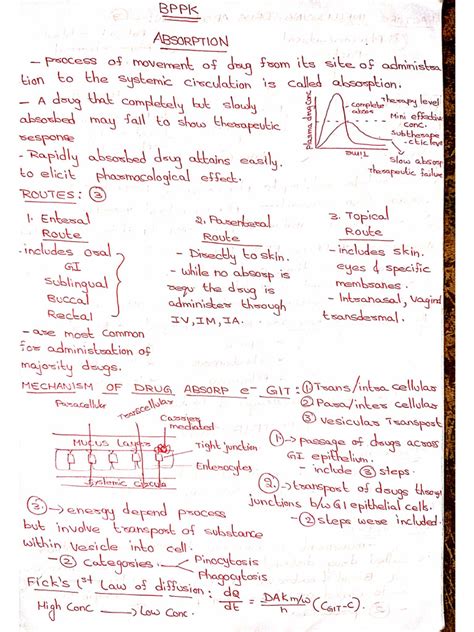 BPPK
ABSORPTION
- process of movement of drug from its site of administra
tion to the systemic circulation is called absorption.
- A drug that completely but slowly
absorbed may fail to show therapeutic
response
- Rapidly absorbed drug attains easily
to elicit pharmacological effect.
Plasma drug conc
Time
complete absor
therapy level
Mini effective
conc.
Subtherape
-ctic level
Slow absorp
therapeutic failure
ROUTES: ③
1. Enteral
Route
- includes oral
GI
Sublingual
Buccal
Rectal
- are most common
for administration of
majority drugs.
2. Parenteral
Route
- Directly to skin.
- while no absorp is
requ the drug is
administer through
IV, IM, IA.
3. Topical
Route
- includes skin.
eyes & specific
membranes.
- Intranasal, Vagind
transdermal.
MECHANISM OF DRUG ABSORP e- GIT: ① Trans/intra cellular
② Para/inter cellular
③ Vesicular Transport
Paracellular
Transcellular
Carrier
mediated
Mucus Layer
Tight junction
Enterocytes
Systemic Circula
①.→ passage of drugs across
GI epithelium.
- include ③ steps.
②.→ transport of drugs throu
junctions b/w GI epithelial cells.
- ② steps were included.
③.→ energy depend process
but involve transport of substance
within vesicle into cell.
- ② categories.
Pinocytosis
Phagocytosis
Fick's 1st Law of diffusion: dQ/dt = DAKm/w/h (CGIT-C).
High Conc → Low Conc.